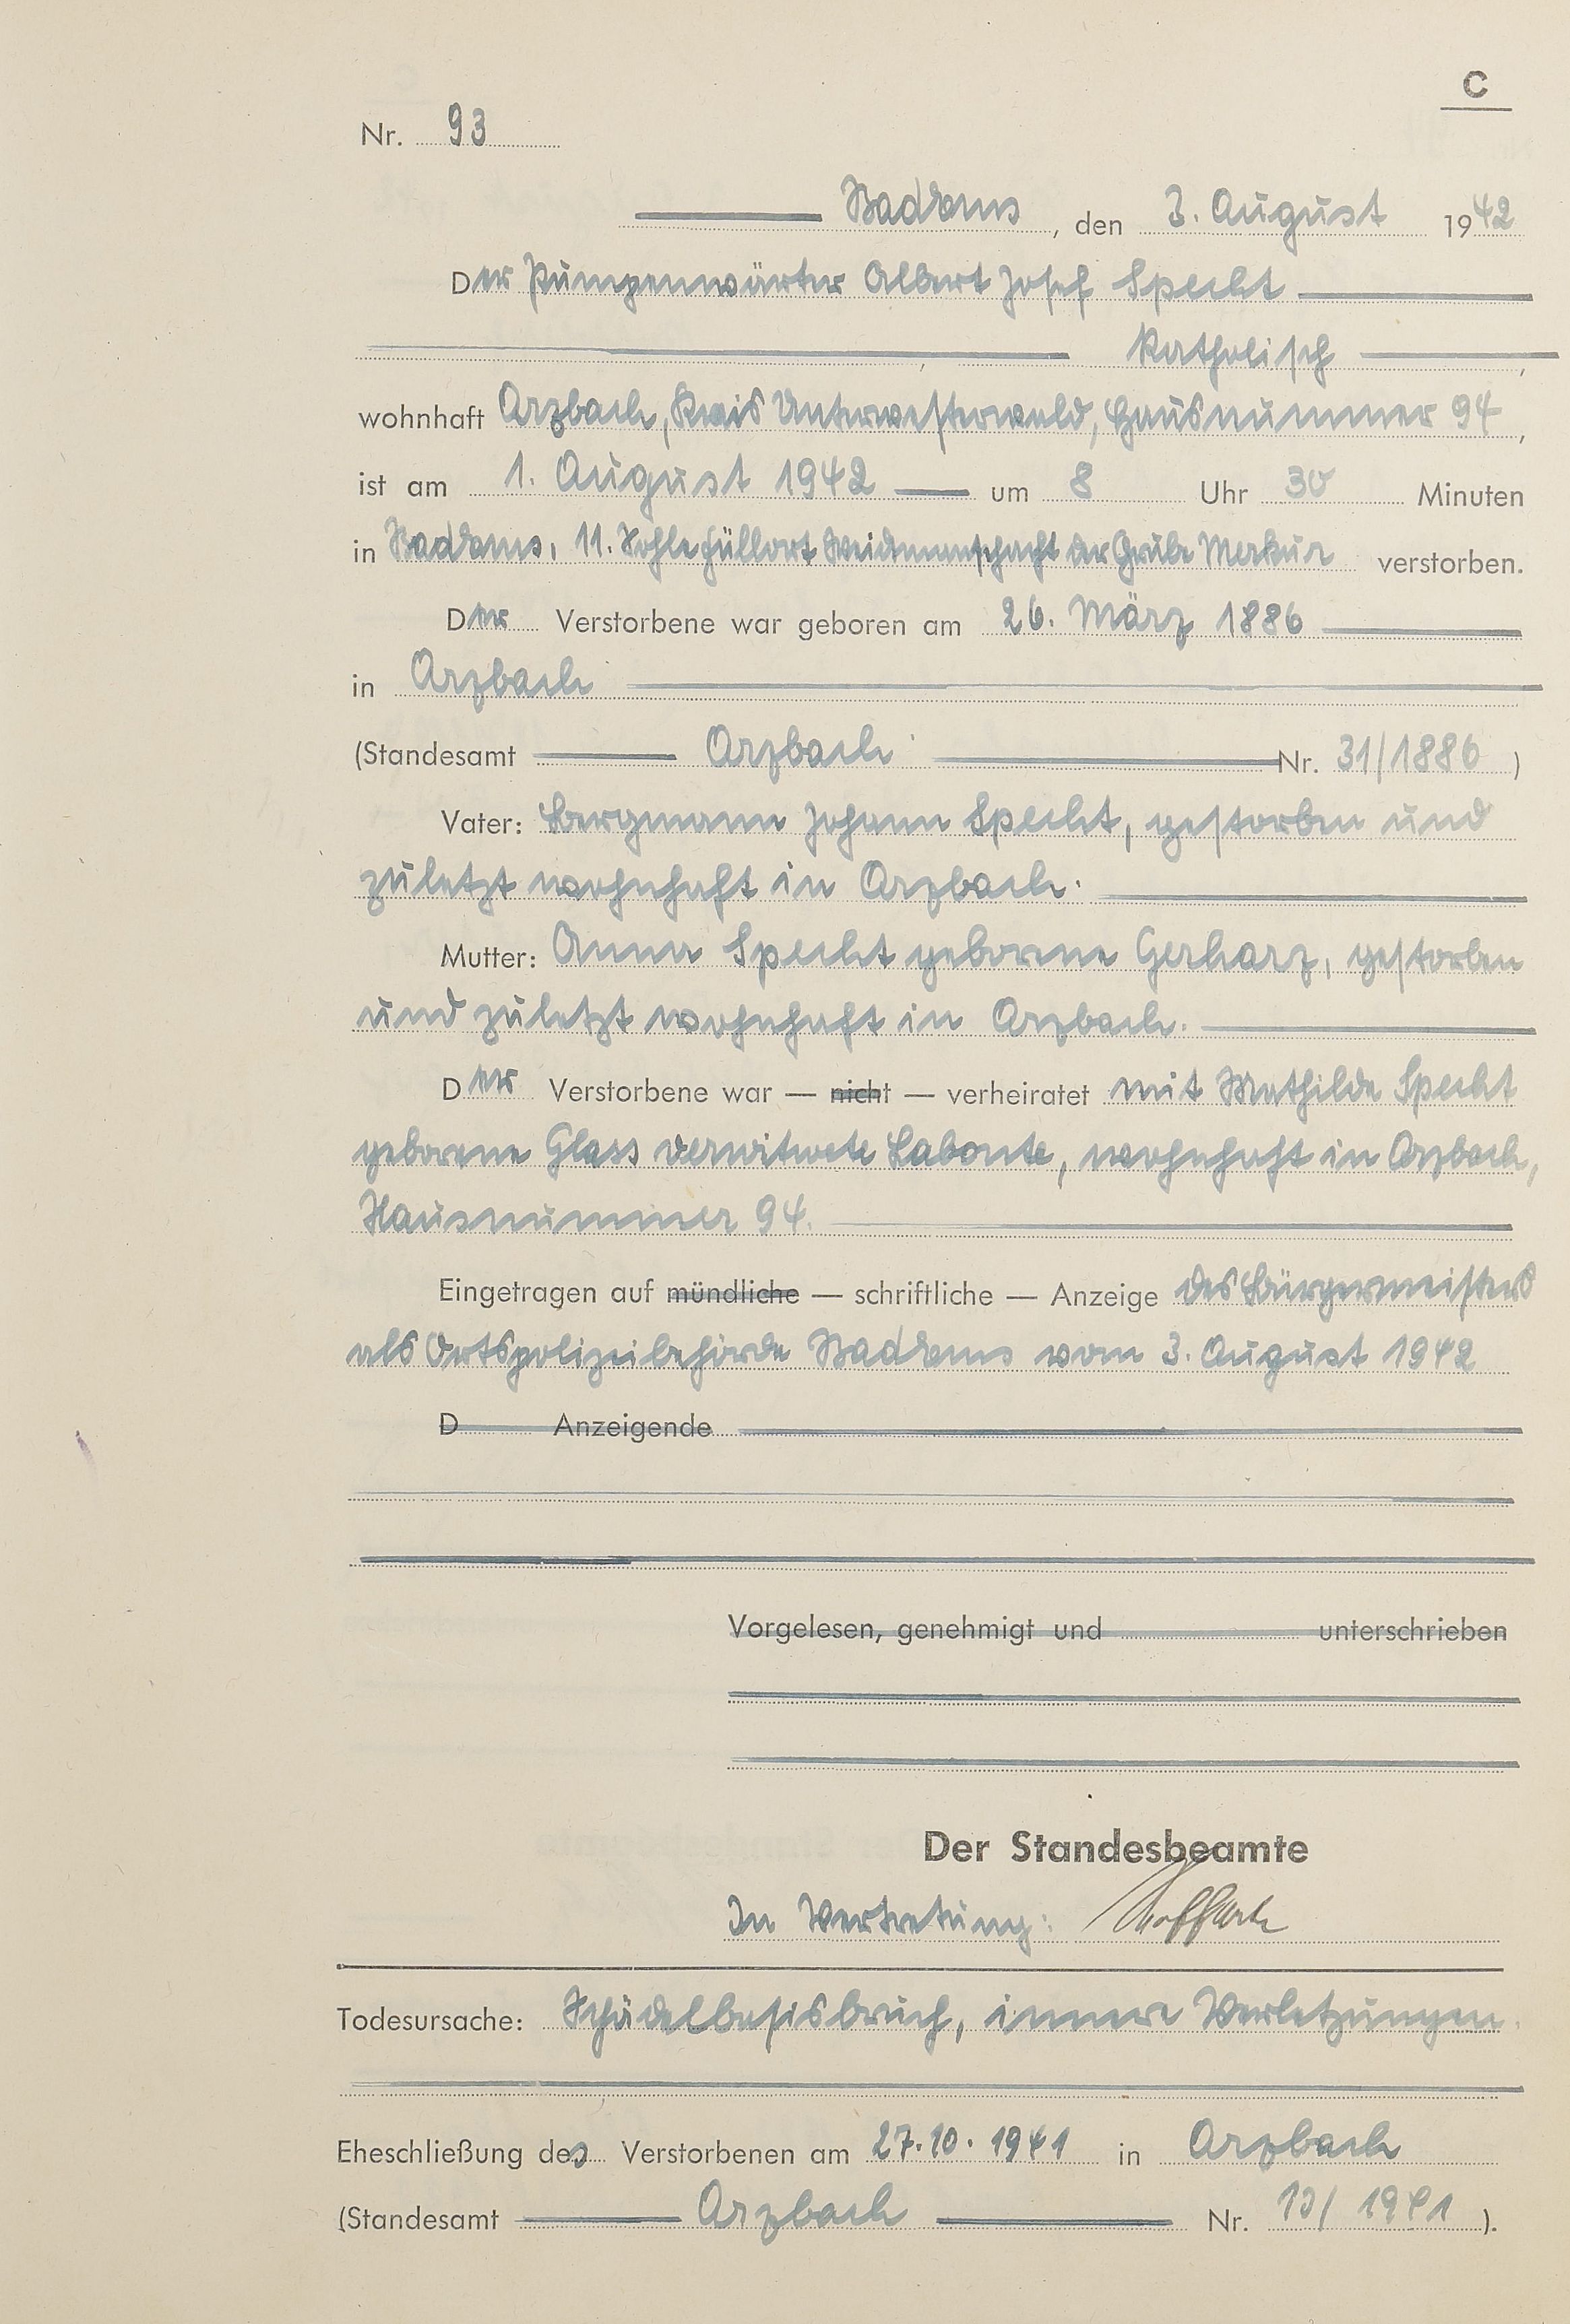 C
Nr. 93
Bad Ems, den 3. August 1942
Der Pumpenwärter Albert Josef Specht
katholisch,
wohnhaft Arzbach, Kreis Unterwesterwald, Hausnummer 94,
ist am 1. August 1942 um 8 Uhr 30 Minuten
in Bad Ems, 11. Sohle Füllort Weidmannschacht der Grube Merkur verstorben.
Der Verstorbene war geboren am 26. März 1886
in Arzbach
(Standesamt Arzbach Nr. 31/1886)
Vater: Bergmann Johann Specht, gestorben und
zuletzt wohnhaft in Arzbach.
Mutter: Anna Specht geborene Gerharz, gestorben
und zuletzt wohnhaft in Arzbach.
Der Verstorbene war — nicht — verheiratet mit Mathilde Specht
geborene Glass verwitwete Labonte, wohnhaft in Arzbach,
Hausnummer 94.
Eingetragen auf mündliche — schriftliche — Anzeige des Bürgermeisters
als Ortspolizeibehörde Bad Ems vom 3. August 1942
D Anzeigende
Vorgelesen, genehmigt und unterschrieben
Der Standesbeamte
In Vertretung:
Todesursache: Schädelbasisbruch, innere Verletzungen.
Eheschließung des Verstorbenen am 27.10.1941 in Arzbach
(Standesamt Arzbach Nr. /1941).